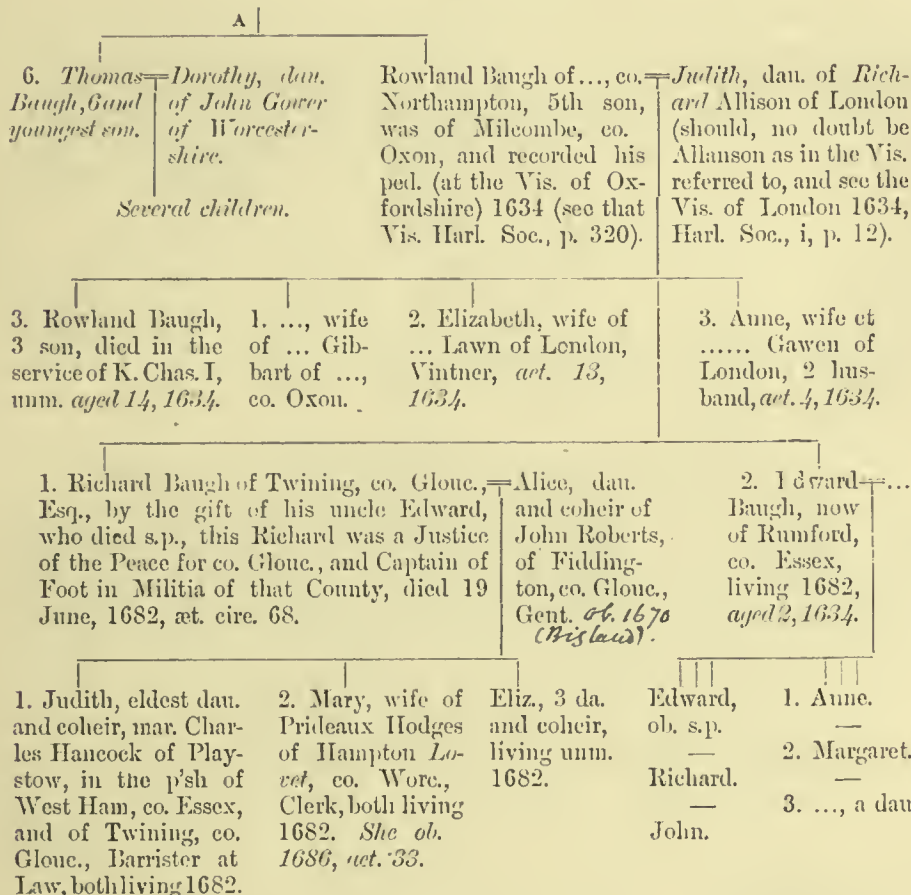 A
6. Thomas
Baugh, 6 and
youngest son.
Dorothy, dau.
of John Gower
of Worcester-
shire.
Several children.
Rowland Baugh of ..., co.
Northampton, 5th son,
was of Milcombe, co.
Oxon, and recorded his
ped. (at the Vis. of Ox-
fordshire) 1634 (see that
Vis. Harl. Soc., p. 320).
Judith, dau. of Rich-
ard Allison of London
(should, no doubt be
Allanson as in the Vis.
referred to, and see the
Vis. of London 1634,
Harl. Soc., i, p. 12).
3. Rowland Baugh,
3 son, died in the
service of K. Chas. I,
unm. aged 14, 1634.
1. ..., wife
of ... Gib-
bart of ...,
co. Oxon.
2. Elizabeth, wife of
... Lawn of London,
Vintner, aet. 13,
1634.
3. Anne, wife of
...... Gawen of
London, 2 hus-
band, aet. 4, 1634.
1. Richard Baugh of Twining, co. Glouc.,
Esq., by the gift of his uncle Edward,
who died s.p., this Richard was a Justice
of the Peace for co. Glouc., and Captain of
Foot in Militia of that County, died 19
June, 1682, æt. circ. 68.
Alice, dau.
and coheir of
John Roberts,
of Fidding-
ton, co. Glouc.,
Gent. ob. 1670
(Bigland).
2. Edward
Baugh, now
of Rumford,
co. Essex,
living 1682,
aged 2, 1634.
...
1. Judith, eldest dau.
and coheir, mar. Char-
les Hancock of Play-
stow, in the p'sh of
West Ham, co. Essex,
and of Twining, co.
Glouc., Barrister at
Law, both living 1682.
2. Mary, wife of
Prideaux Hodges
of Hampton Lo-
vet, co. Worc.,
Clerk, both living
1682. She ob.
1686, aet. 33.
Eliz., 3 da.
and coheir,
living unm.
1682.
Edward,
ob. s.p.
—
Richard.
—
John.
1. Anne.
—
2. Margaret.
—
3. ..., a dau